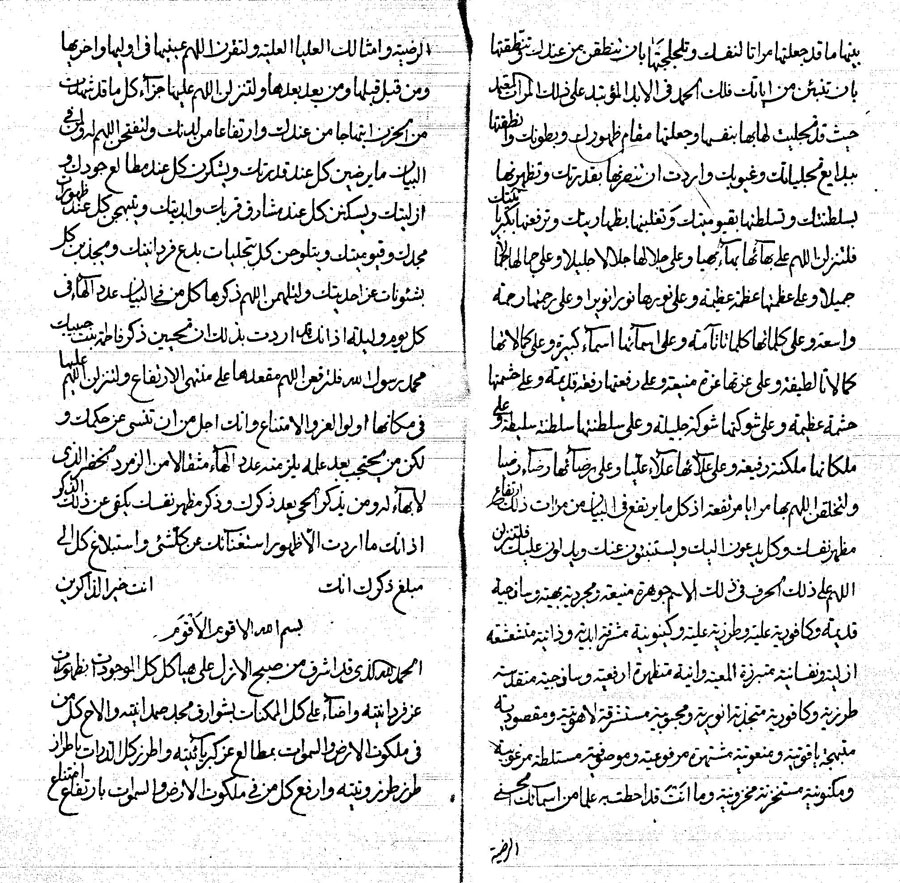 بينها ما قد جعلتها مراتا لنفسك و تلجلجتها بان تنطقن من عندك و تنطقنها
بان تنبئن من اياتك فلك الحمد فى الابد المؤبد على ذلك المرات
حيث قد تجليت لها بها بنفسها و جعلتها مقام ظهورك و بطونك و انطقتها
ببدايع تجلياتك و غيوبك و اردت ان تنصرنها بقدرتك و تظهرنها
بسلطنتك و تسلطنها بقيوميتك و تغلبنها بظهاريتك و ترفعنها بكبريائيتك
فلتنزلن اللهم على بهائها بهاء بهيا و على جلالها جلالا جليلا و على جمالها جمالا
جميلا و على عظمتها عظمة عظيمة و على نورها نورا نويرا و على رحمتها رحمة
واسعة و على كلماتها كلماتا تامة و على اسمائها اسماء كبيرة و على كمالاتها
كمالاتا لطيفة و على عزتها عزة منيعة و على رفعتها رفعة قديمة و على حشمتها
حشمة عظيمة و على شوكتها شوكة جليلة و على سلطنتها سلطنة سليطة و على
ملكاتها ملكة رفيعة و على علائها علاء عليا و على رضائها رضاء رضيا
و لتخلقن اللهم بها مرايا مرتفعة اذ كل ما يرتفع فى البيان من مرات ذلك ارتفاع
مظهر نفسك و كل يدعون اليك و يستنبئون عنك و يدلون عليك فلتنزلن
اللهم على ذلك الحرف فى ذلك الاسم جوهرة منيعة و مجردية بهية و ساذجية
قديمة و كافورية علية و طرزية علية و كينونية مشرقة ابدية و ذاتية متشعشعة
ازلية و نفسانية متبرزة المعية و انية متظهرة ارفعية و ساذجية
طرزية و كافورية متجذبة انورية و محبوبية مستشرقة لاهوتية و مقصودية
متبهجة ياقوتية و منعوتية مشتهرة مرفوعية و موصوفية مستلطة مرغوبية
و مكنونية مستخزنة مخزونية و ما انت قد احطت به علما من اسمائك الحسنى
الرضية
الرضية و امثالك العليا العلية و لتقرن اللهم عينيها فى اوليها و اخريها
و من قبل قبلها و من بعد بعدها و لتنزلن اللهم عليها جزاء كل ما قد شهدت
من الحزن ابتهاجا من عندك و ارتفاعا من لدنك و لتفتحن اللهم لها و لمن فى
البيان ما يرضين كل عند قدرتك و يشكرن كل عند مطالع جودك و
ازليتك و يسكنن كل عند مشارق قربك و ابديتك و يبتهجن كل عند ظهورات
مجدك و قيوميتك و يتلوحن كل بتجليات بدع فردانيتك و يجذبن كل
بشئونات عز احديتك و لتلهمن اللهم ذكرها كل من فى البيان عدد الهاء فى
كل يوم و ليلة اذ انك اردت بذلك ان تحيين ذكر فاطمة بنت حبيبك
محمد رسول الله فلترفعن اللهم مقعدها على منتهى الارتفاع و لتنزلن اللهم عليها
فى مكانها اولوا العز و الامتناع و انك اجل من ان تنسى عن حكمك و
لكن من يحتجب بعد علمه يلزمنه عدد الهاء مثقالا من الزمرد المخضر الذى
لا بهاء له و من يذكر الحى بعد ذكرك و ذكر مظهر نفسك يكفى عن ذلك الذكر
اذ انك ما اردت الا ظهور استغنائك عن كلشئ و استبلاغ كل الى
مبلغ ذكرك انك انت خير الذاكرين
بسم الله الاقوم الاقوم
الحمد لله الذى قد اشرق من صبح الازل على هياكل كل الموجودات بظهورات
عز فردانيته و اضاء على كل الممكنات بشوارق مجد صمدانيته و الاح كل من
فى ملكوت الارض و السموات بمطالع عز كبريائيته و اطرز كل الذرات باطراز
طرز طرزونيته و ارفع كل من فى ملكوت الارض و السموات بارتفاع امتناع